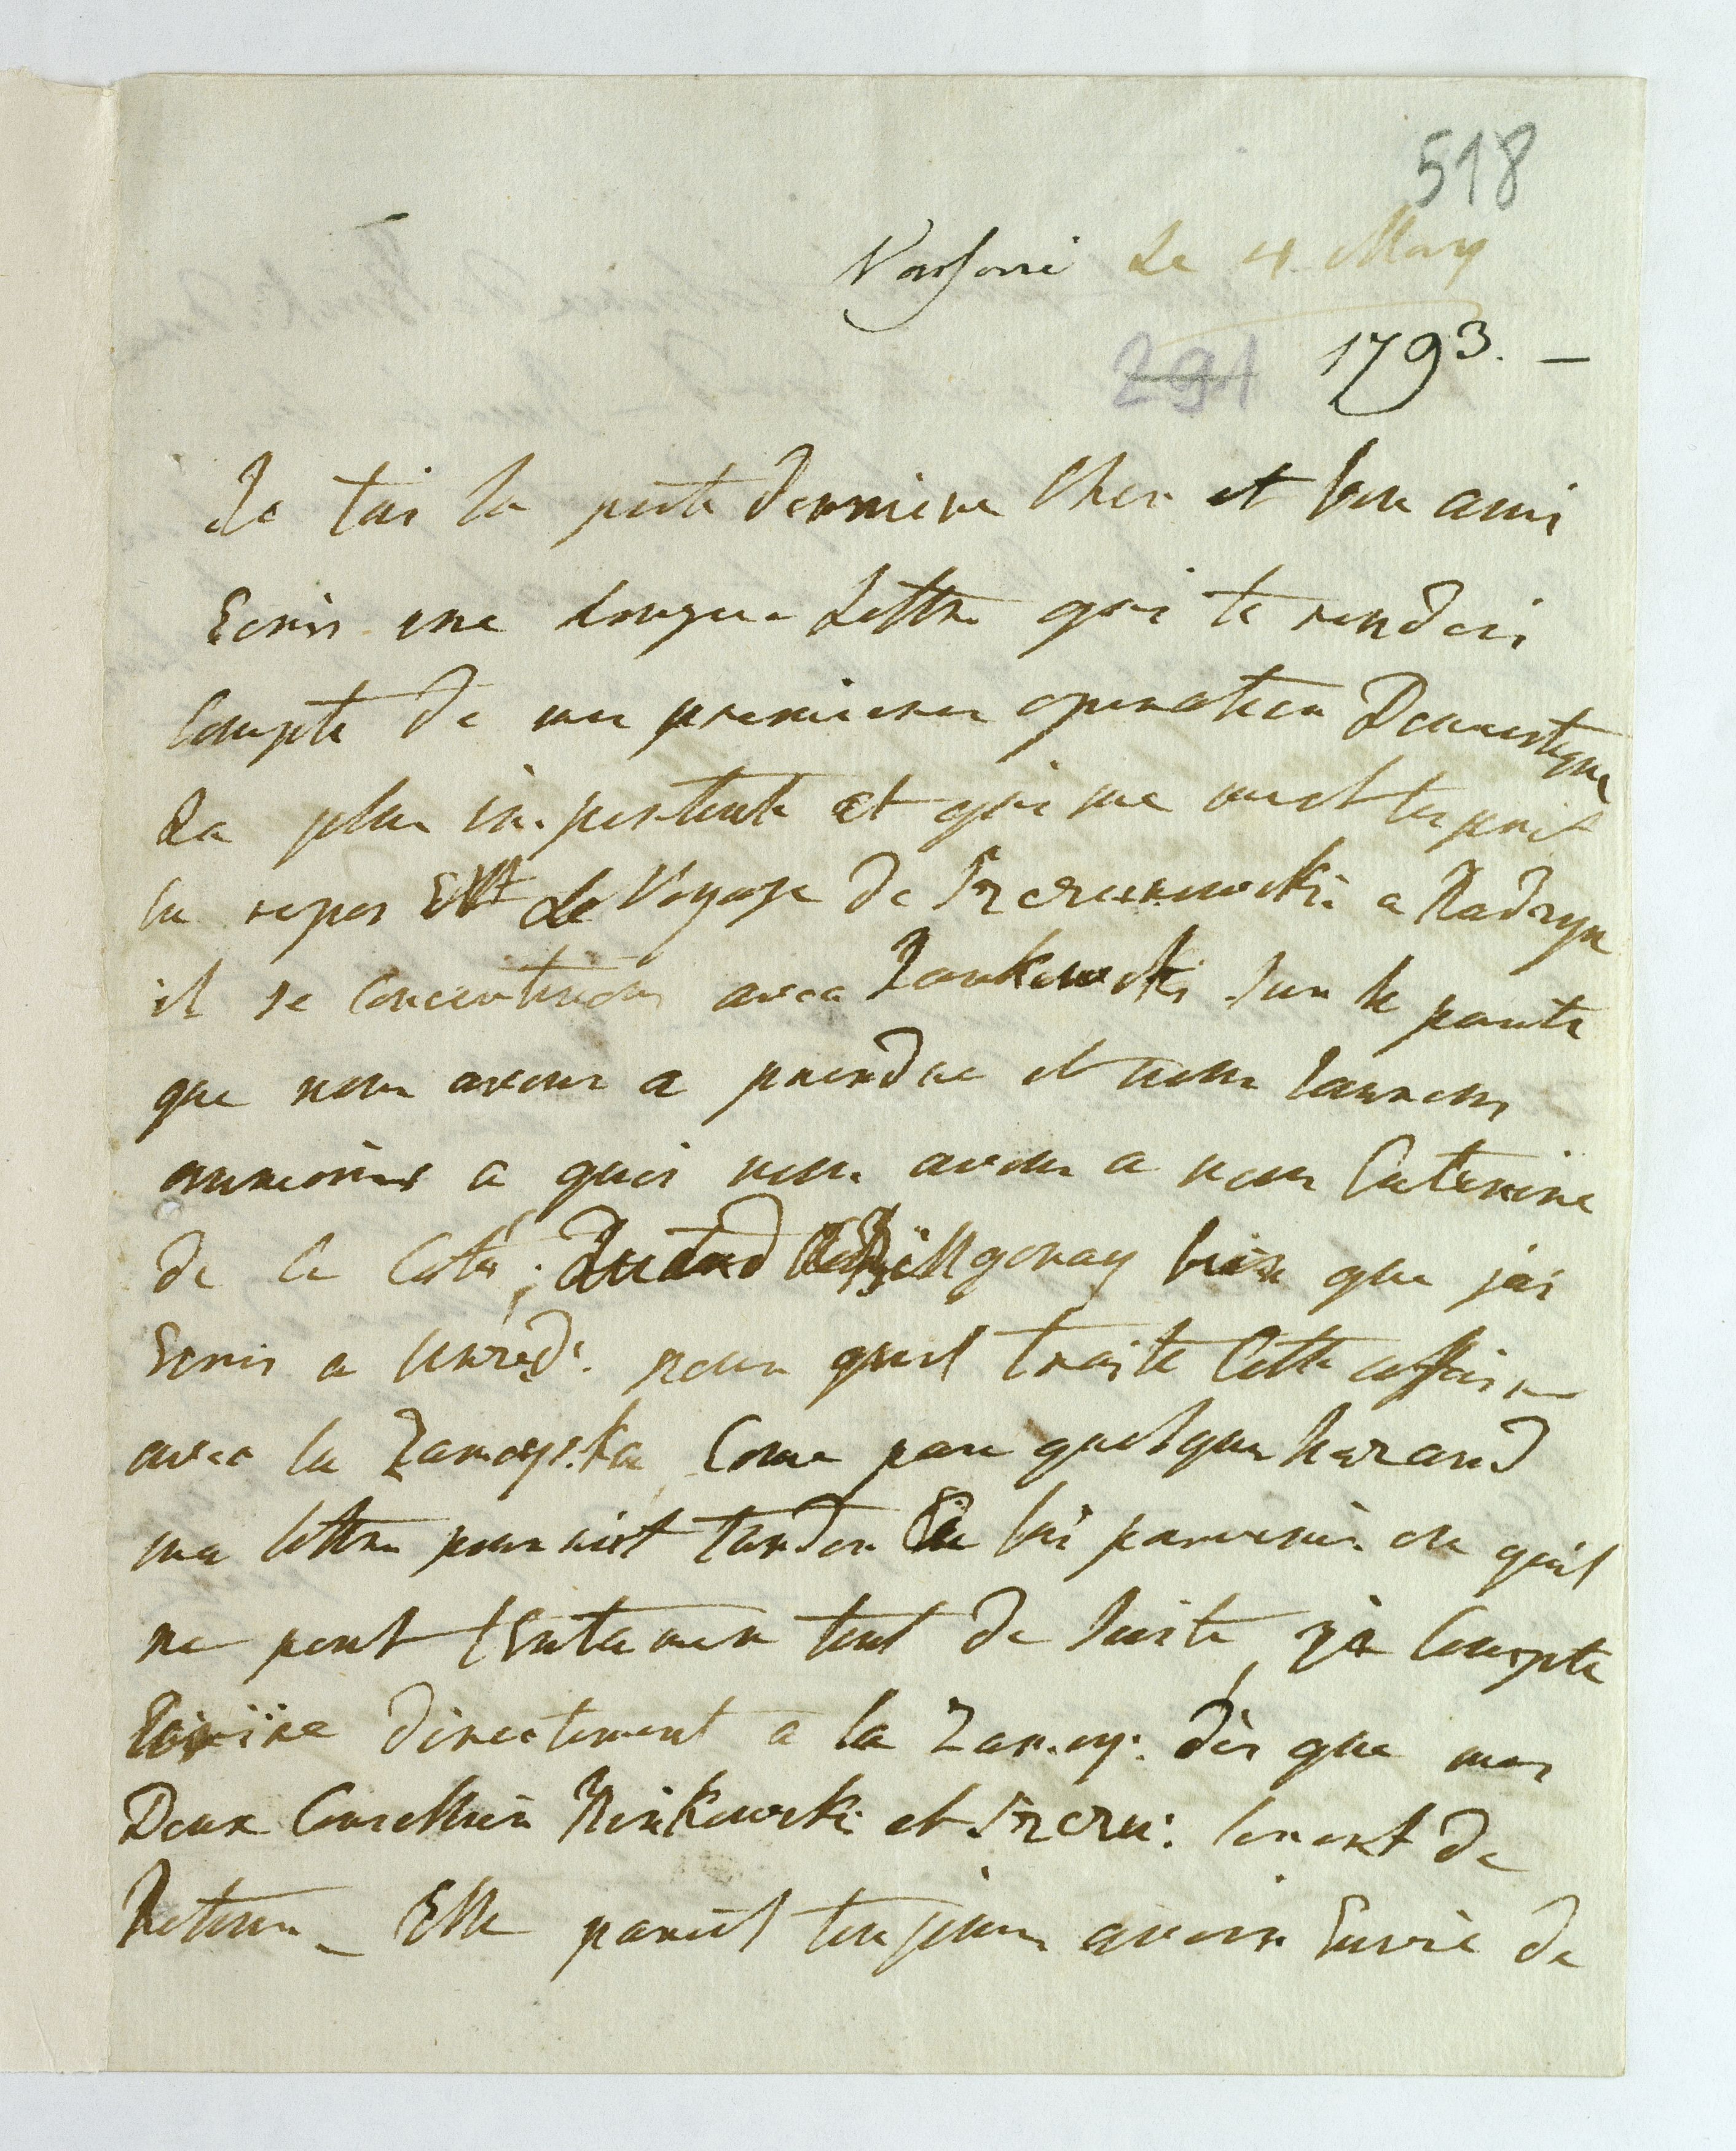 518
Varsovie Le 4 May
291 1793. —
Je tai la poste derniere Cher et bon ami
Ecris une Longue Lettre qui te rendoi
Compte de mes premieres operation Domestique
La plus importente et qui me met lesprit
en repos Est Le Voyage de Szczurowski a Radzyn
il se Concentrera avec Zankowski sur le partie
que nous avons a prendre et nous saurons
a quoi nous avons a nous Cutenire
de ce Coté; Quand Bilgoray bien que jai
Ecris a pour quil traite Cette affaire
avec la Zamoyska Come pare quelque hazard
ma lettre pourroit tarder a lui parvenir ou quil
ne peut lEntamer tout de suite, je Compte
Ecrire directement a la Zamoy: dès que mes
Deux Conseillier Minkowski et Szczu: seront de
Retour — Elle paroit toujour avoir Envie de